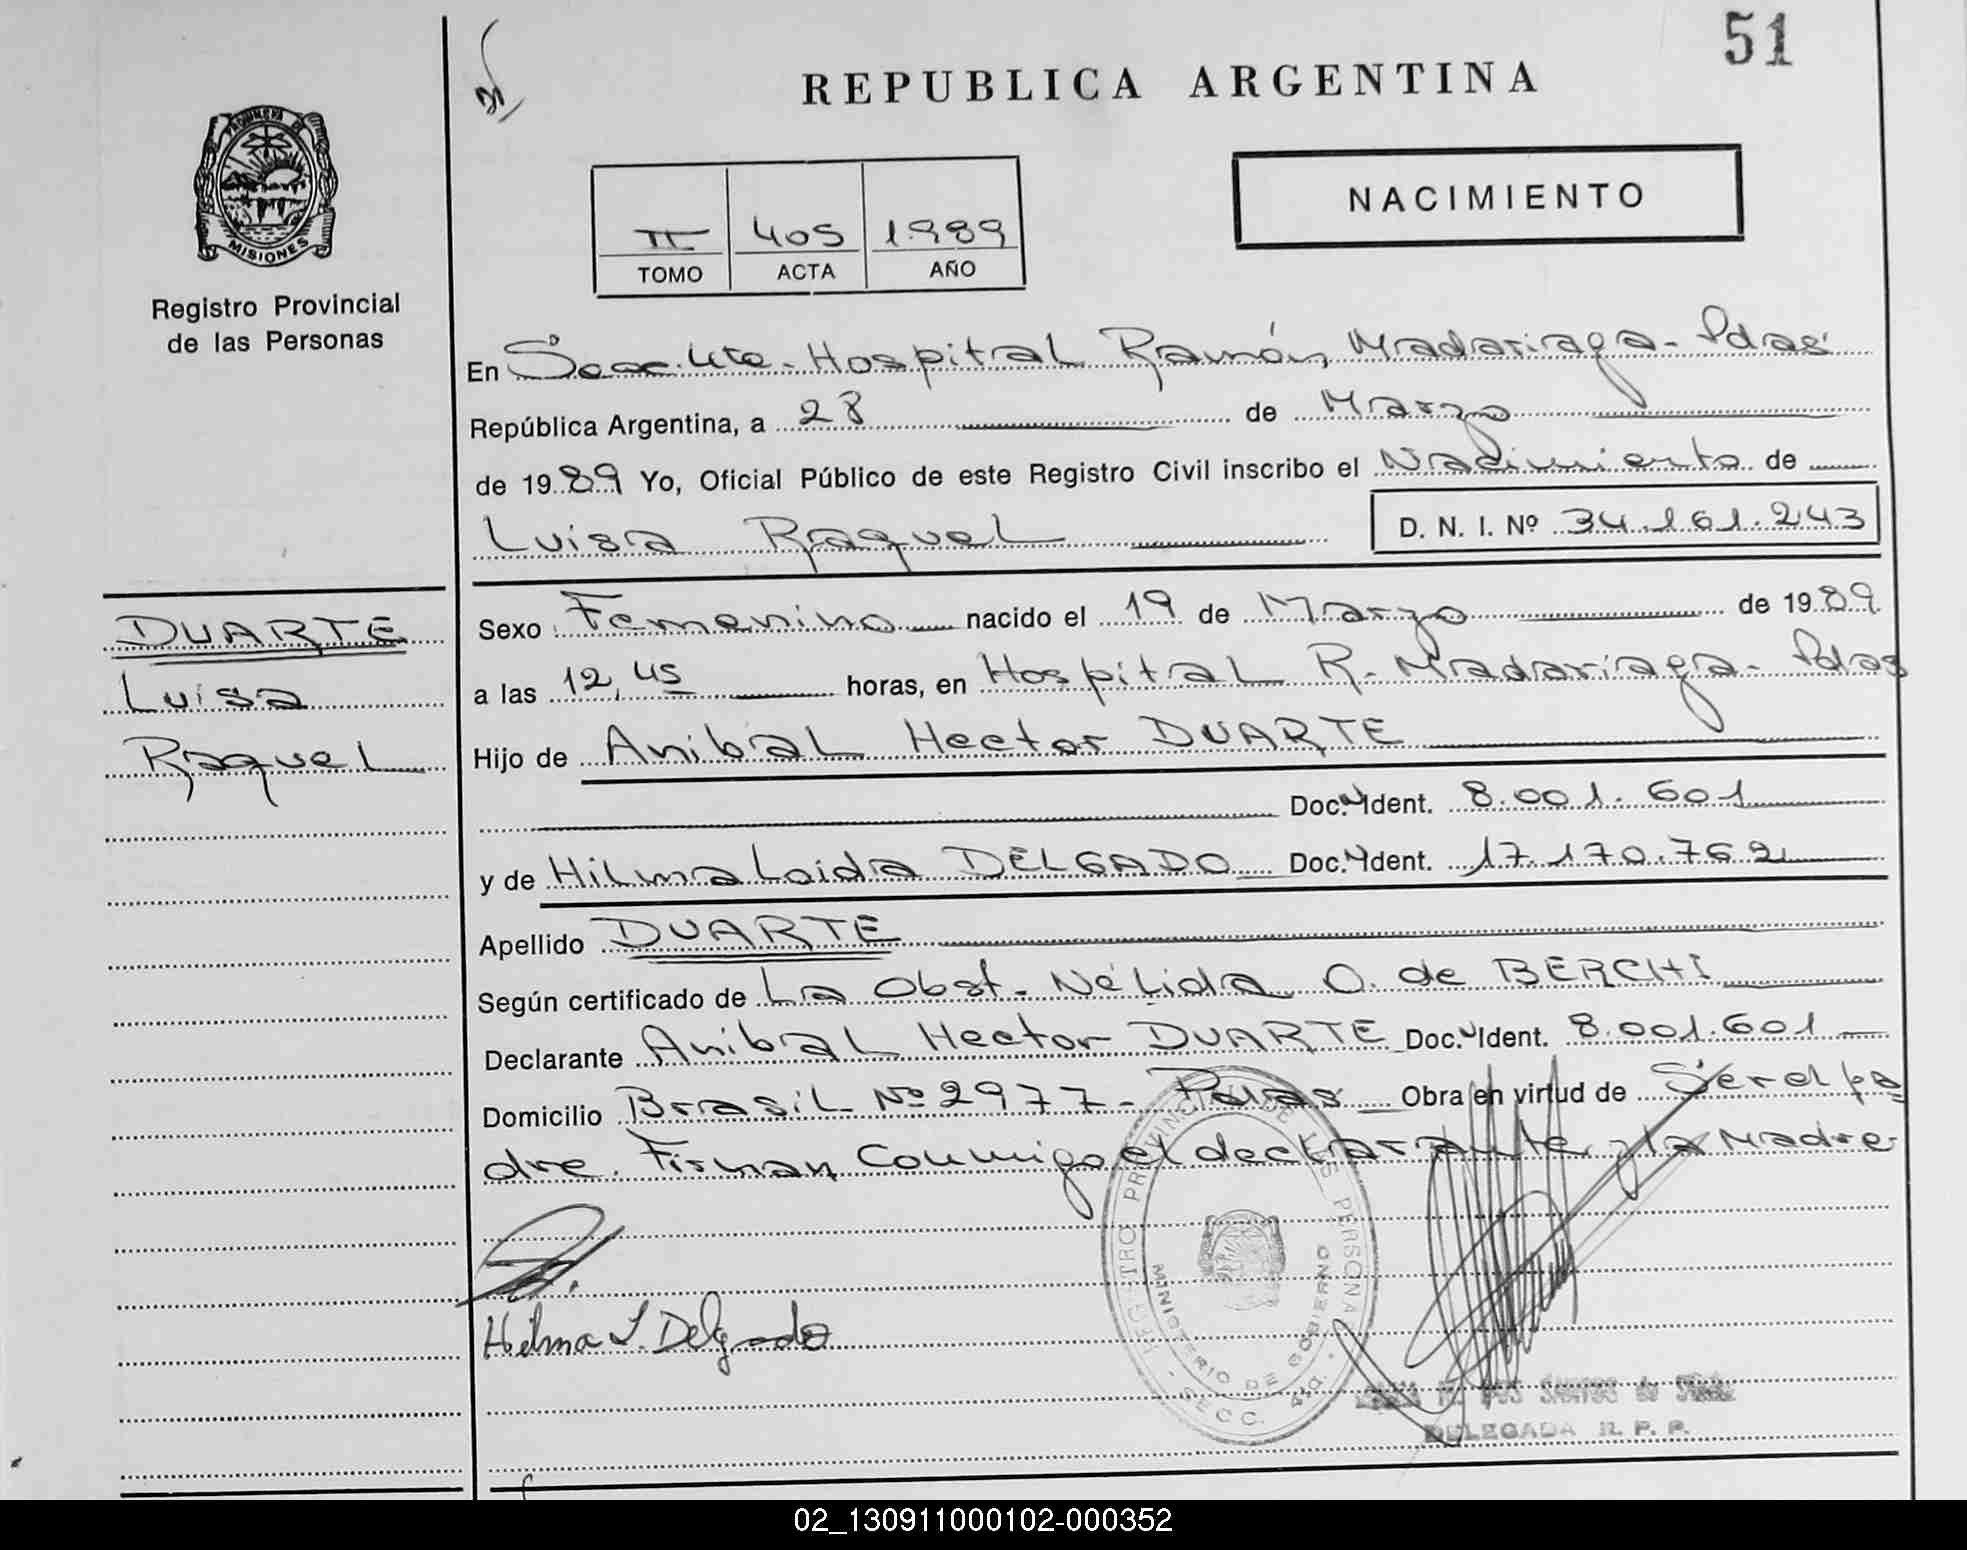 51
REPUBLICA ARGENTINA
PROVINCIA DE
MISIONES
Registro Provincial
de las Personas
NACIMIENTO
II 405 1989
TOMO ACTA AÑO
En Secc. 4ta. Hospital Ramón Madariaga - Pdas
República Argentina, a 28 de Marzo
de 1989 Yo, Oficial Público de este Registro Civil inscribo el Nacimiento de
Luisa Raquel D. N. I. Nº 34.161.243
DUARTE
Luisa
Raquel
Sexo Femenino nacido el 19 de Marzo de 1989
a las 12,45 horas, en Hospital R. Madariaga - Pdas
Hijo de Anibal Hector DUARTE
Doc. Ident. 8.001.601
y de Hilma Loida DELGADO Doc. Ident. 17.170.762
Apellido DUARTE
Según certificado de La Obst. Nélida O. de BERCHI
Declarante Anibal Hector DUARTE Doc. Ident. 8.001.601
Domicilio Brasil Nº 2977 - Pdas Obra en virtud de Ser el pa
dre. Firman Conmigo el declarante y la Madre
Hilma L. Delgado
REGISTRO PROVINCIAL DE LAS PERSONAS
MINISTERIO DE GOBIERNO
SECC. 4ta.
DELEGADA R. P. P.
02_130911000102-000352